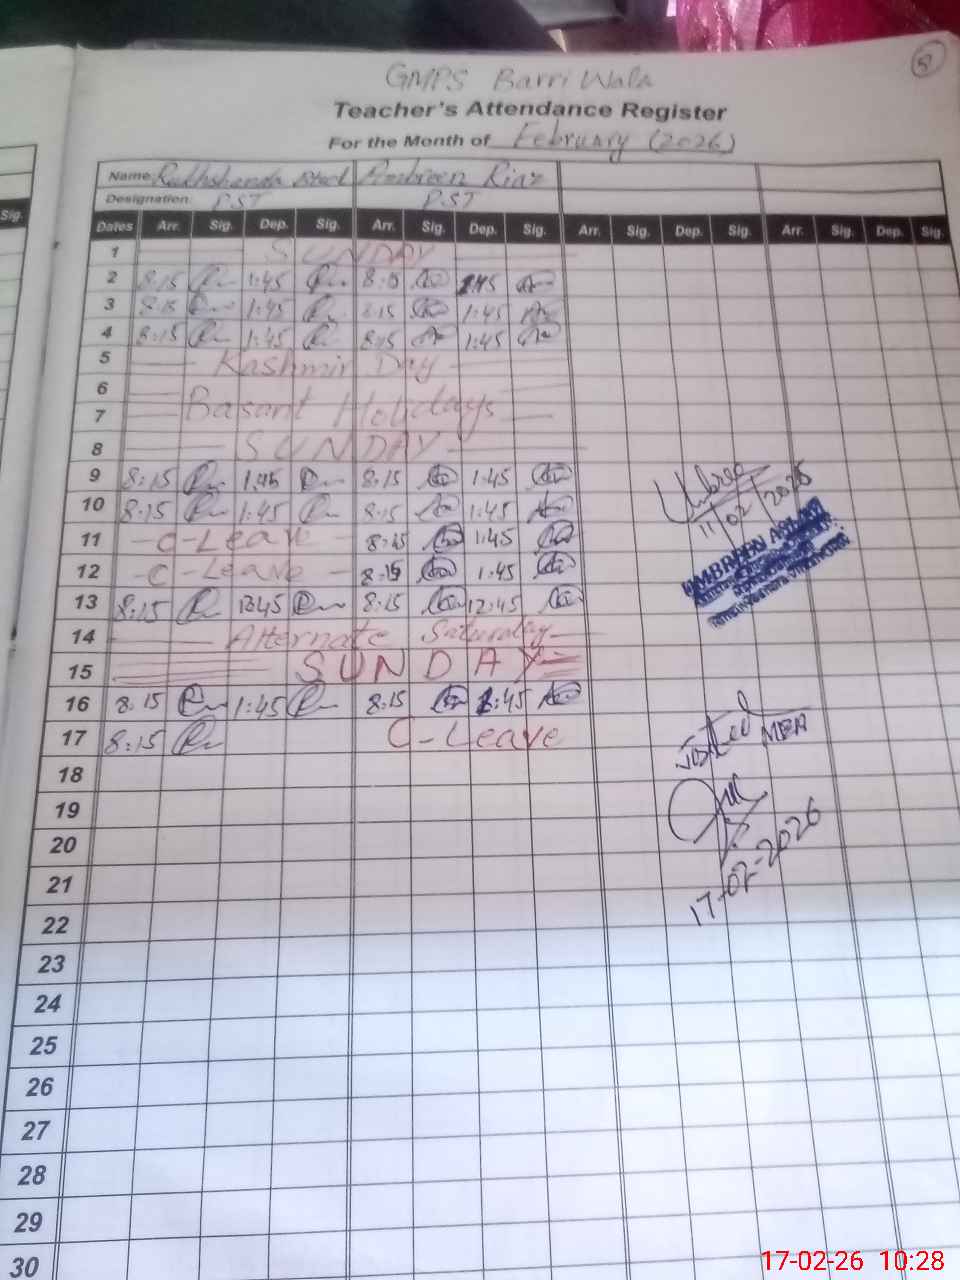 8
GMPS Barri Wala
Teacher's Attendance Register
For the Month of February (2026)
Name: Ambreen Riaz
Designation: P.ST P.ST
Sig.
Dates Arr. Sig. Dep. Sig. Arr. Sig. Dep. Sig. Arr. Sig. Dep. Sig. Arr. Sig. Dep. Sig.
1 SUNDAY
2 8:15 1:45 8:15 1:45
3 8:15 1:45 8:15 1:45
4 8:15 1:45 8:15 1:45
5 Kashmir Day
6
7 Basant Holidays
8 SUNDAY
9 8:15 1:45 8:15 1:45
10 8:15 1:45 8:15 1:45
11 C-Leave 8:15 1:45
11/02/2026
12 C-Leave 8:15 1:45
13 8:15 12:45 8:15 12:45
14 Alternate Saturday
15 SUNDAY
16 8:15 1:45 8:15 1:45
17 8:15 C-Leave
Visited MEA
18
19
20
17-02-2026
21
22
23
24
25
26
27
28
29
30
17-02-26 10:28